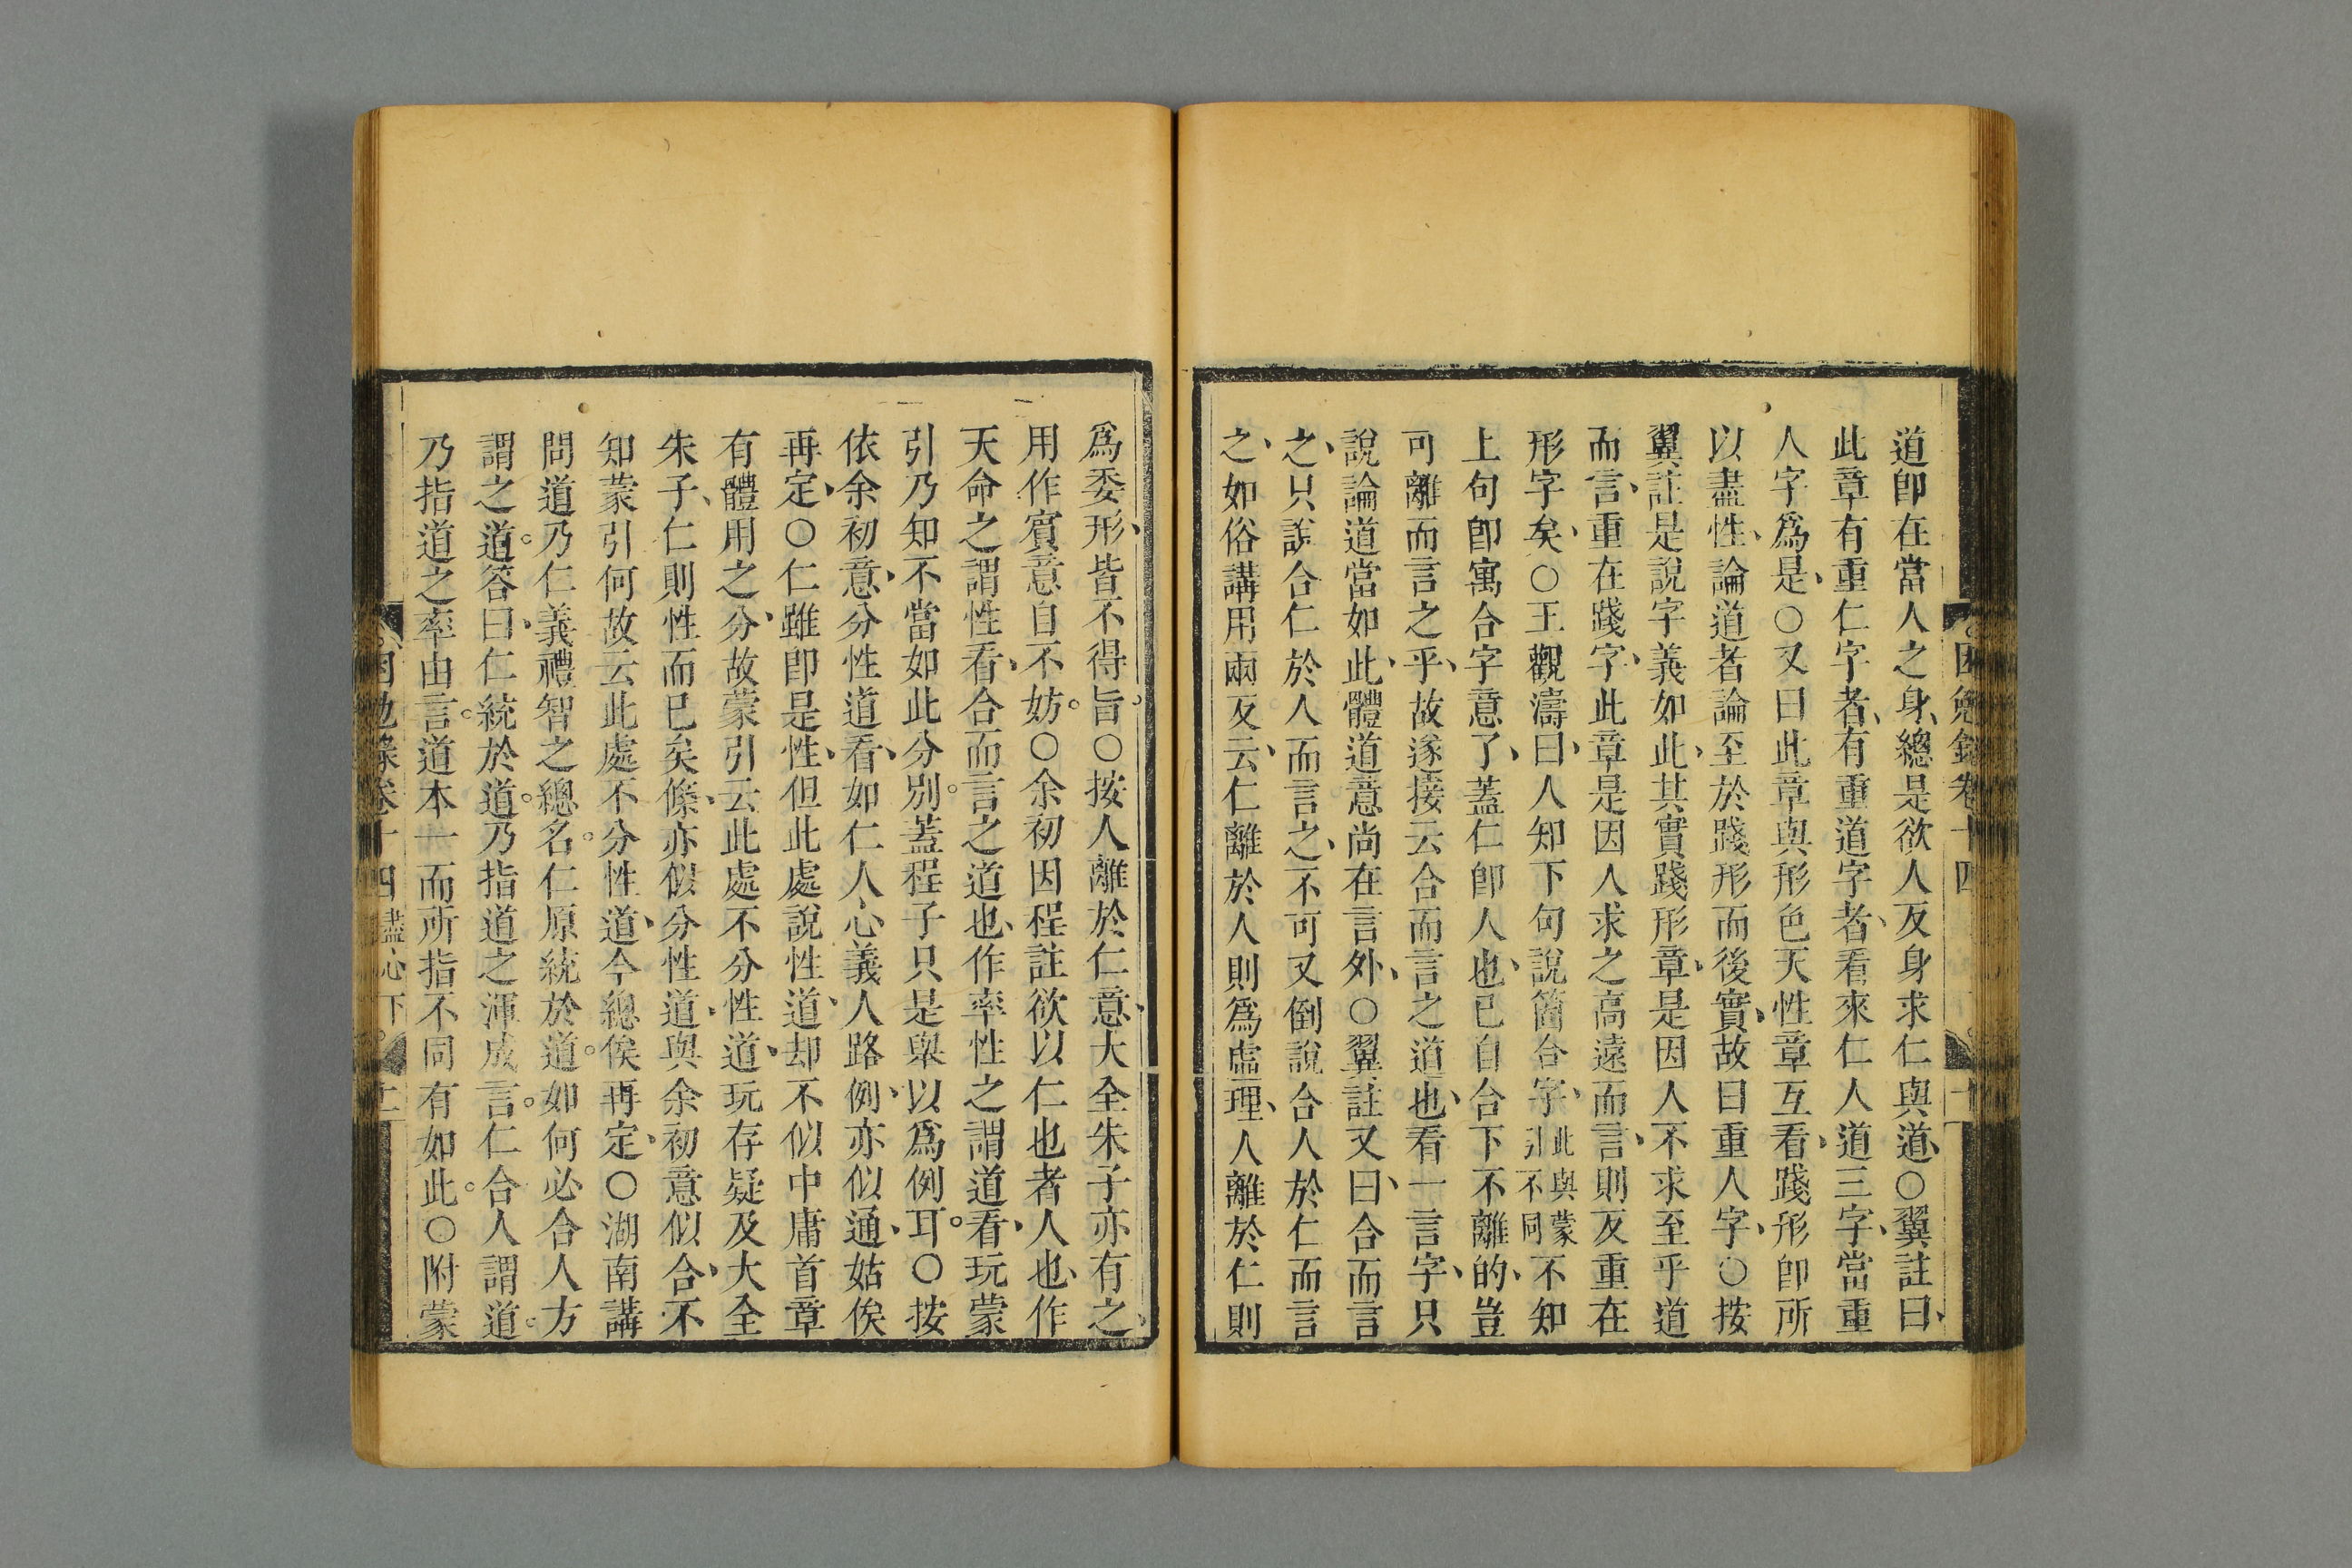 道卽在當人之身、總是欲人反身求仁與道、○翼註曰、
此章有重仁字者、有重道字者、看來仁人道三字、當重
人字爲是、○又曰此章與形色天性章互看、踐形卽所
以盡性、論道者論至於踐形而後實、故曰重人字、○按
翼註是說字義如此、其實踐形章、是因人不求至乎道
而言、重在踐字、此章是因人求之高遠而言、則反重在
形字矣、○王觀濤曰、人知下句說箇合字、此與蒙引不同不知
上句卽寓合字意了、蓋仁卽人也、已自合下不離的、豈
可離而言之乎、故遂接云合而言之道也、看一言字、只
說論道當如此、體道意尚在言外、○翼註又曰、合而言
之、只說合仁於人而言之、不可又倒說合人於仁而言
之、如俗講用兩反云、仁離於人則爲虛理、人離於仁則
爲委形、皆不得旨。○按人離於仁意、大全朱子亦有之、
用作賓意自不妨。○余初因程註欲以仁也者人也、作
天命之謂性看、合而言之道也、作率性之謂道看、玩蒙
引乃知不當如此分別。蓋程子只是舉以爲例耳。○按
依余初意、分性道看、如仁人心義人路例、亦似通、姑俟
再定、○仁雖卽是性、但此處說性道、却不似中庸首章
有體用之分、故蒙引云此處不分性道、玩存疑及大全
朱子、仁則性而已矣條、亦似分性道、與余初意似合、不
知蒙引何故云此處不分性道、今總俟再定、○湖南講
問道乃仁義禮智之總名。仁原統於道。如何必合人方
謂之道。答曰、仁統於道。乃指道之渾成言。仁合人謂道。
乃指道之率由言。道本一而所指不同有如此。○附蒙
因勉錄卷十四 盡心下。